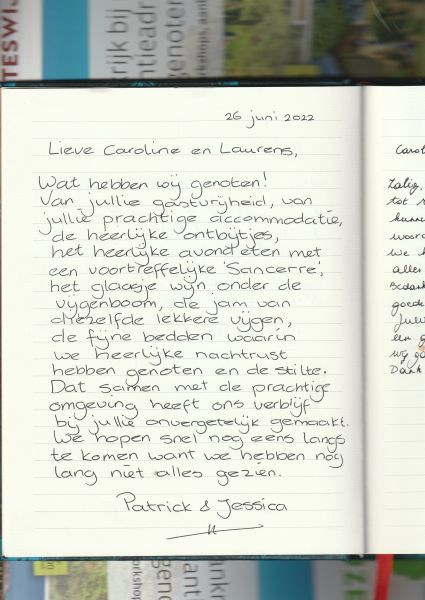 26 juni 2022
Lieve Caroline en Laurens,
Wat hebben wij genoten!
Van jullie gastvrijheid, van
jullie prachtige accommodatie,
de heerlijke ontbijtjes,
het heerlijke avondeten met
een voortreffelijke 'Sancerre',
het glaasje wijn onder de
vijgenboom, de jam van
diezelfde lekkere vijgen,
de fijne bedden waarin
we heerlijke nachtrust
hebben genoten en de stilte.
Dat samen met de prachtige
omgeving heeft ons verblijf
bij jullie onvergetelijk gemaakt.
We hopen snel nog eens langs
te komen want we hebben nog
lang niet alles gezien.
Patrick & Jessica
Zalig,
tot
we
alles
goede
een
wij
Dank